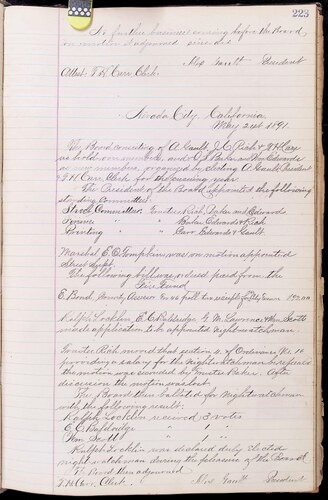 223
No further business coming before the Board,
on motion adjourned sine die
Alex Gault President
Attest. T. H. Carr, Clerk.
Nevada City, California
May 21st 1891.
The Board consisting of A Gault, J. C. Rich &
as hold over members, and Baker and Wm Edwards
as new members, organized by electing A Gault President
T. H. Carr, Clerk for the ensuing year.
The President of the Board appointed the following
standing Committees.
Street Committee Trustees Rich, Baker and Edwards
Finance " Baker, Edwards & Rich
Printing " Carr, Edwards & Gault
Marshal E. O. Tompkins was on motion appointed
Street Supt.
The following bill was ordered paid from the
Fire Fund
E. Bond County Assessor
Ralph Locklin, E. C. Batdridge, G. M. Lawrence & Wm Scott
made application to be appointed nightwatchman.
Trustee Rich moved that section 4, of Ordinance No. 11
providing a salary for the nightwatchman be
the motion was seconded by Trustee Baker. After
discussion the motion was lost.
The Board then balloted for Nightwatchman
with the following result:
Ralph Locklin received 3 votes
E. C. " 1 "
Wm Scott " 1 "
Ralph Locklin was declared duly elected
nightwatchman during the pleasure of the Board
The Board then adjourned
T. H. Carr, Clerk. Alex Gault President